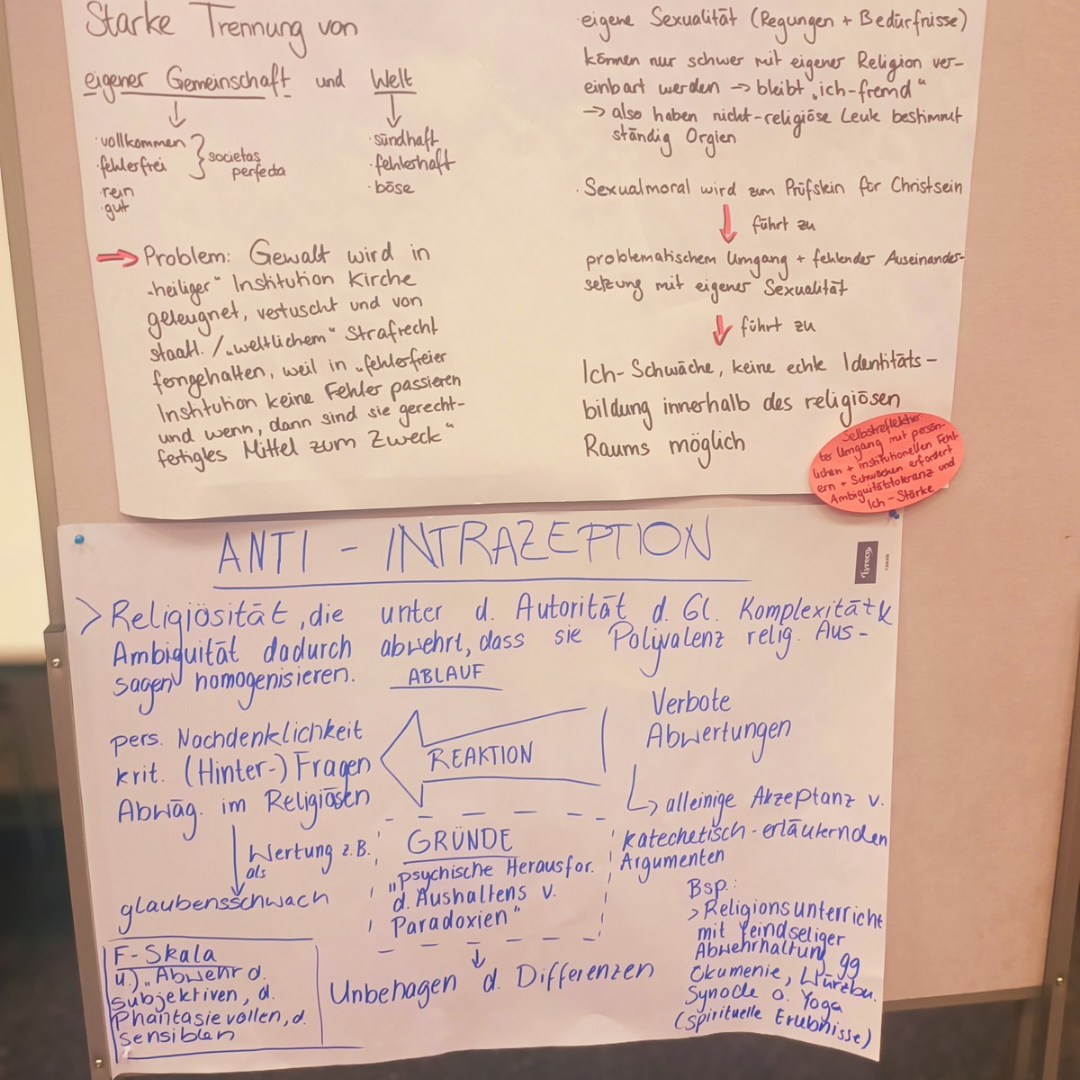 Starke Trennung von
eigener Gemeinschaft und Welt
· vollkommen
· fehlerfrei
· rein
· gut
societas
perfecta
· sündhaft
· fehlerhaft
· böse
Problem: Gewalt wird in
„heiliger" Institution Kirche
geleugnet, vertuscht und von
staatl. / „weltlichem" Strafrecht
ferngehalten, weil in „fehlerfreier
Institution keine Fehler passieren
und wenn, dann sind sie gerecht-
fertigtes Mittel zum Zweck"
· eigene Sexualität (Regungen + Bedürfnisse)
können nur schwer mit eigener Religion ver-
einbart werden → bleibt „ich-fremd"
→ also haben nicht-religiöse Leute bestimmt
ständig Orgien
· Sexualmoral wird zum Prüfstein für Christsein
führt zu
problematischem Umgang + fehlender Auseinander-
setzung mit eigener Sexualität
führt zu
Ich-Schwäche, keine echte Identitäts-
bildung innerhalb des religiösen
Raums möglich
Selbstreflektier
ter Umgang mit persön-
lichen + institutionellen Fehl-
ern + Schwächen erfordert
Ambiguitätstoleranz und
Ich-Stärke
ANTI - INTRAZEPTION
Lyreco
> Religiösität, die unter d. Autorität d. Gl. Komplexität &
Ambiguität dadurch abwehrt, dass sie Polyvalenz relig. Aus-
sagen homogenisieren.
ABLAUF
pers. Nachdenklichkeit
krit. (Hinter-) Fragen
Abwäg. im Religiösen
REAKTION
Verbote
Abwertungen
↳ alleinige Akzeptanz v.
katechetisch-erläuternden
Argumenten
Wertung z.B.
als
glaubensschwach
GRÜNDE
„psychische Herausfor.
d. Aushaltens v.
Paradoxien"
Unbehagen d. Differenzen
Bsp.:
> Religionsunterricht
mit feindseliger
Abwehrhaltung gg
Ökumenie, Würzbu.
Synode o. Yoga
(spirituelle Erlebnisse)
F-Skala
u.) „Abwehr d.
subjektiven, d.
Phantasievollen, d.
sensiblen